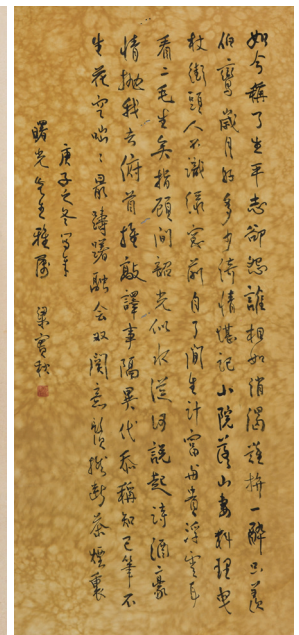 如今轉了生平志卻怨誰相如消渴謹拚一醉只羨
伯鸞歲月的多少清情堪記小院蔭山妻料理曳
杖街頭人不識綠窗前自了閒生計富與貴浮雲耳
看二毛生矣指顧間韶光似水從何說起詩酒豪
情拋我去俯首推敲譯事隔異代忝稱知己筆不
生花空咄咄最躊躇融會雙關意燈擬斷茶煙裏
庚子大冬寫奉
曙光先生雅屬 梁實秋